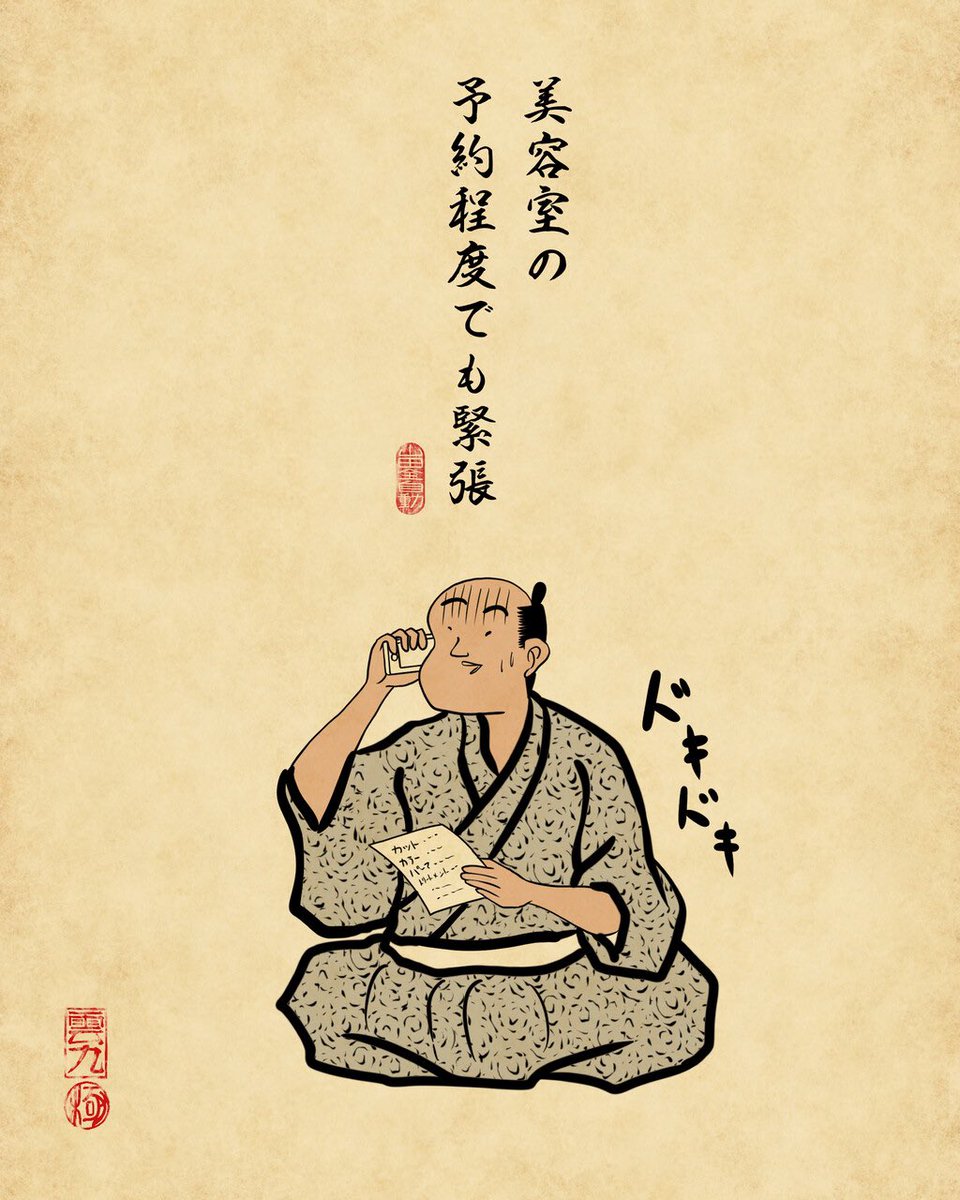 美容室の
予約程度でも緊張
ドキドキ
カット
カラー
パーマ
トリートメント